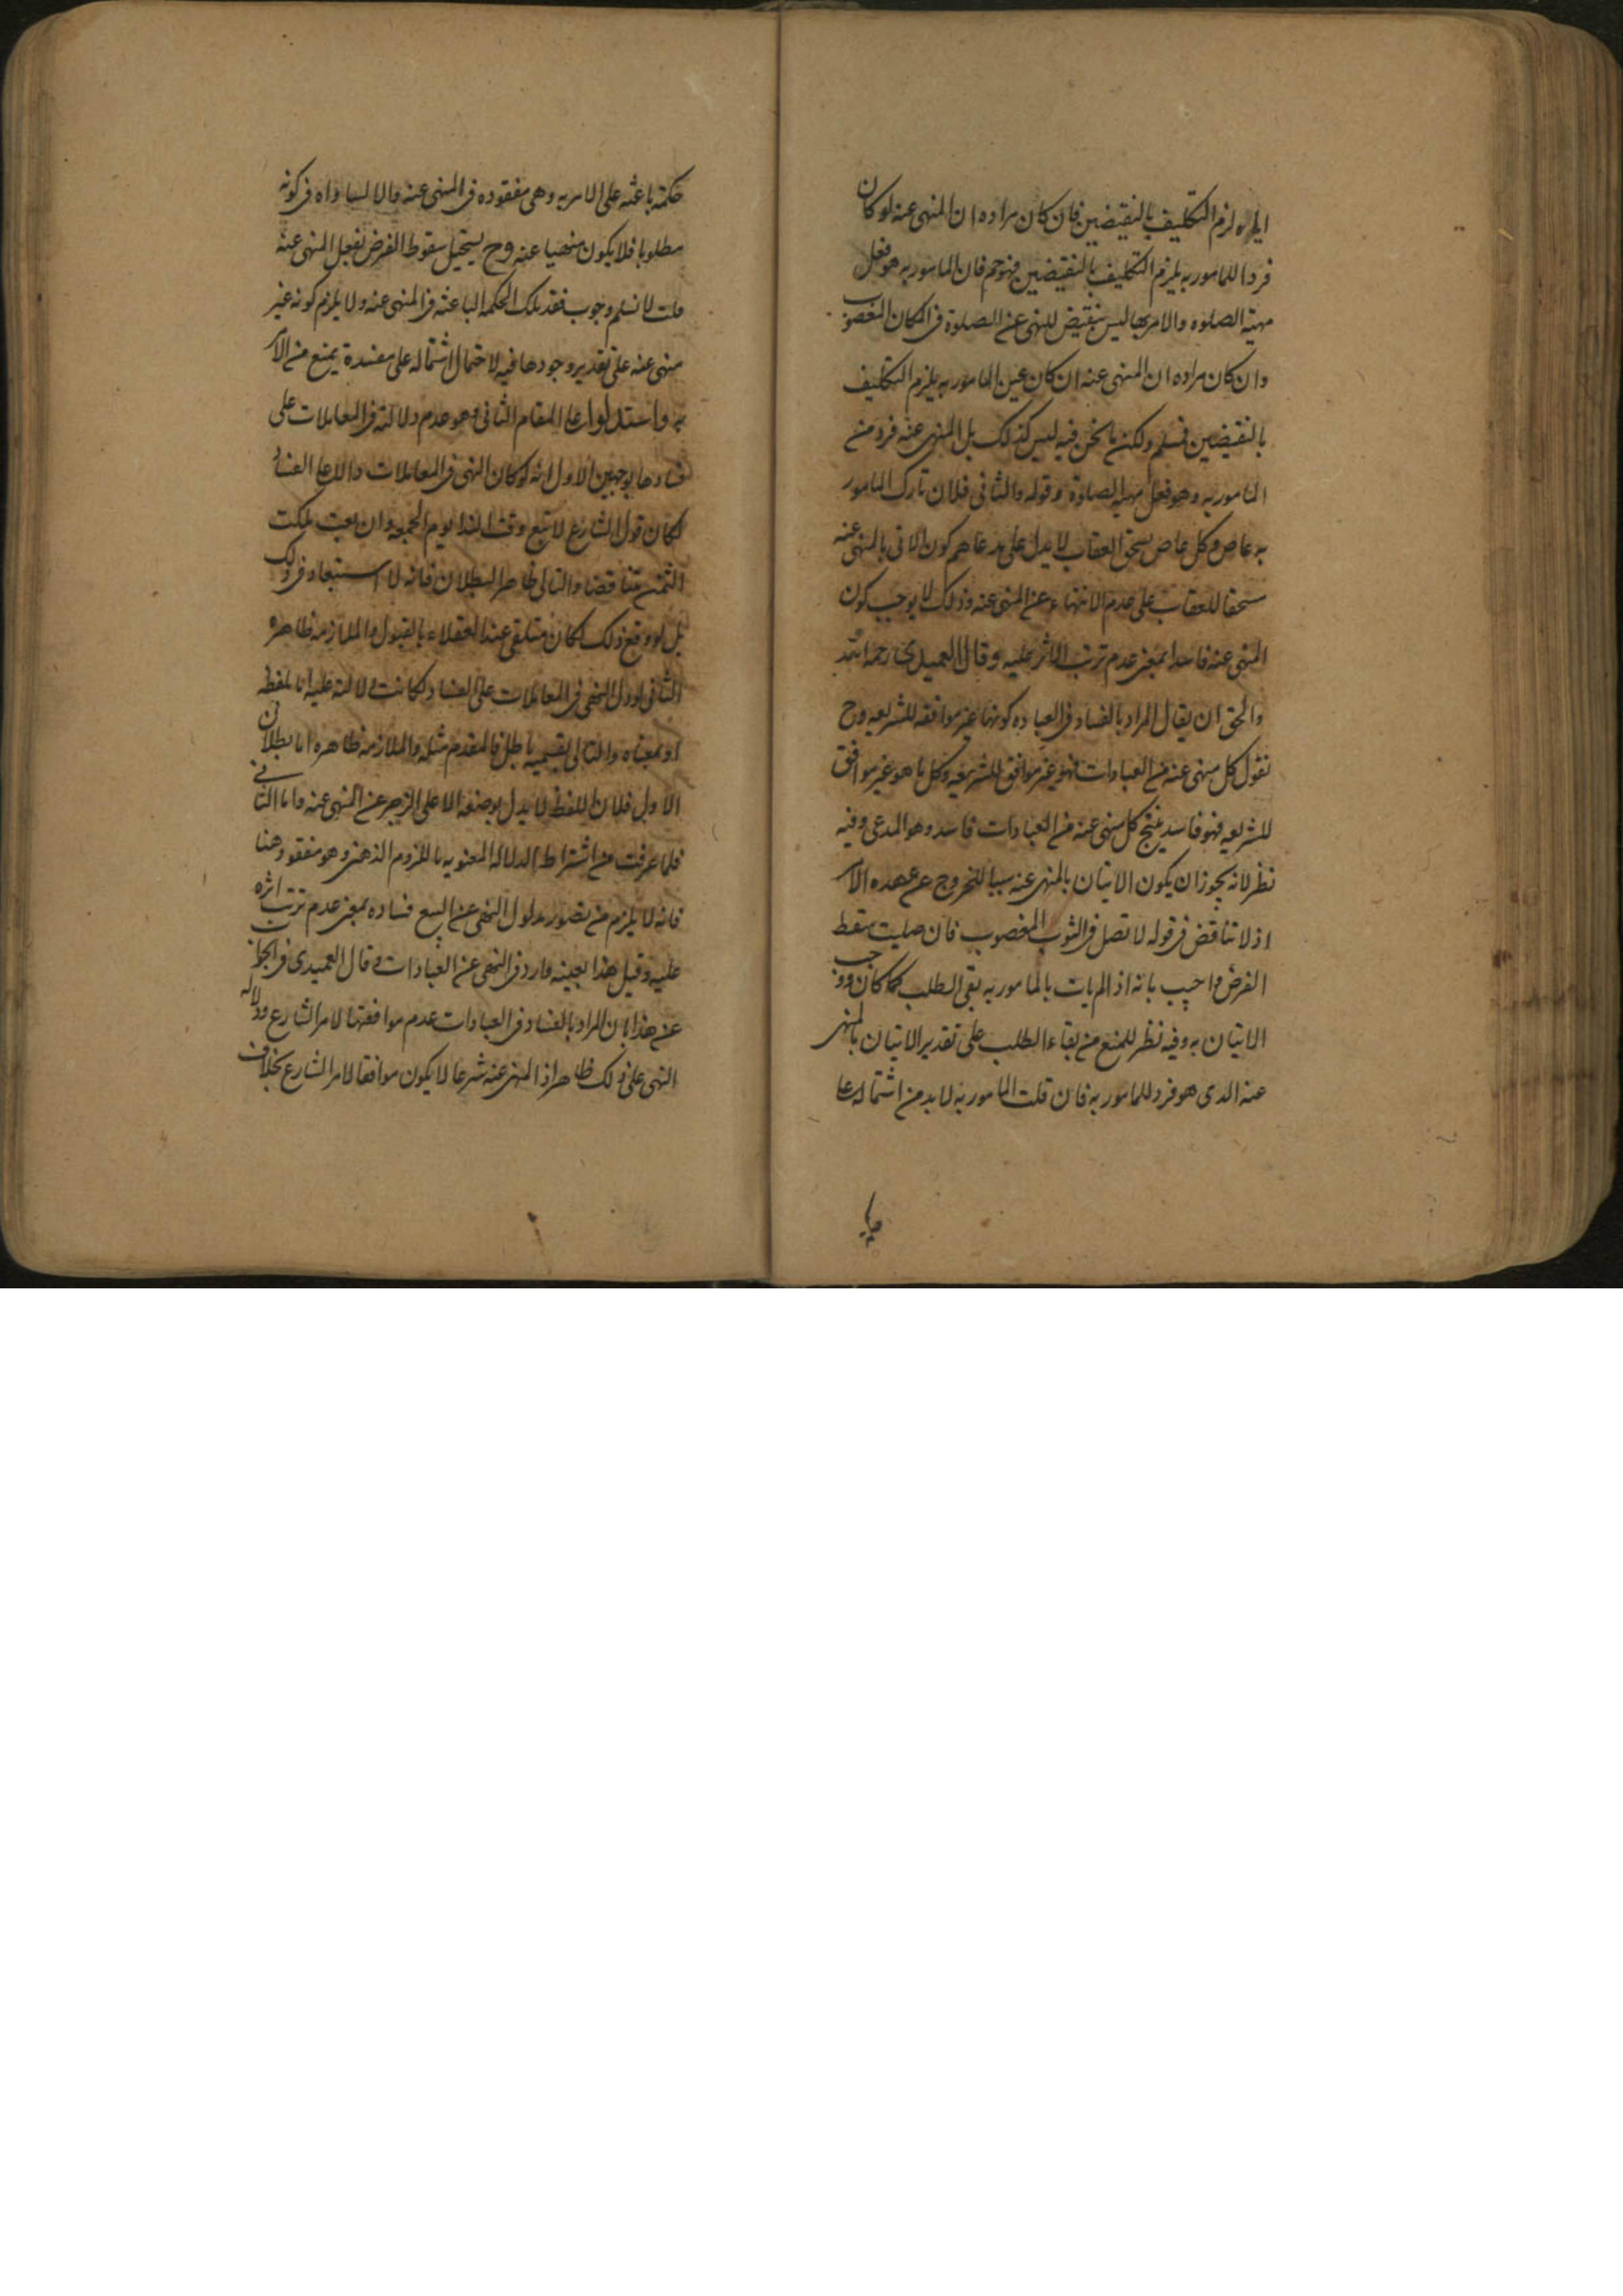 لزم التكليف بالنقيضين فان كان مراده ان المنهى عنه لو كان
فردا للمامور به يلزم التكليف بالنقيضين فهو فان المامور به هو فعل
مهية الصلوه والامر بها ليس بنقيض للنهى عن الصلوة فى المكان المغصوب
وان كان مراده ان المنهى عنه ان كان عين المامور به يلزم التكليف
بالنقيضين فمسلم ولكن ما نحن فيه ليس كذلك بل المنهى عنه فرد من
المامور به وهو فعل مهية الصلوة وقوله والثانى فلان تارك المامور
به عاص وكل عاص يستحق العقاب لا يدل على مدعاهم كون الاتى بالمنهى عنه
مستحقا للعقاب على عدم الانتهاء عن المنهى عنه وذلك لا يوجب كون
المنهى عنه فاسدا بمعنى عدم ترتب الاثر عليه وقال العميدى رحمه الله
والحق ان يقال المراد بالفساد فى العباده كونها غير موافقه للشريعه وح
نقول كل منهى عنه من العبادات فهو غير موافق للشريعه وكل ما هو غير موافق
للشريعه فهو فاسد ينتج كل منهى عنه من العبادات فاسد وهو المدعى وفيه
نظر لانه يجوز ان يكون الاتيان بالمنهى عنه سببا للخروج عن عهده الامر
اذ لا تناقض فى قوله لا تصل فى الثوب المغصوب فان صليت سقط
الفرض واجيب بانه اذا لم يات بالمامور به بقى الطلب كما كان ووجب
الاتيان به وفيه نظر للمنع من بقاء الطلب على تقدير الاتيان بالمنهى
عنه الدى هو فرد للمامور به فان قلت المامور به لا بد من اشتماله على
حكمة
حكمة باعثه على الامر به وهى مفقوده فى المنهى عنه والا لساواه فى كونه
مطلوبا فلا يكون منهيا عنه وح يستحيل سقوط الفرض بفعل المنهى عنه
قلت لا نسلم وجوب فقد تلك الحكمه الباعثه فى المنهى عنه ولا يلزم كونه غير
منهى عنه على تقدير وجودها فيه لاحتمال اشتماله على مفسدة يمنع من الامر
به واستدلوا على المقام الثانى وهو عدم دلالته فى المعاملات على
فسادها بوجهين الاول انه لو كان النهى فى المعاملات دالا على الفساد
لكان قول الشارع لا تبع وقت الندا يوم الجمعه وان بعت ملكت
الثمن متناقضا والتالى ظاهر البطلان فانه لا استبعاد فى ذلك
بل لو وقع ذلك لكان متلقى عند العقلاء بالقبول والملازمه ظاهره
الثانى لو دل النهى فى المعاملات على الفساد لكانت دلالته عليه اما بلفظه
او بمعناه والتالى بقسميه باطل فالمقدم مثله والملازمه ظاهره اما بطلان
الاول فلان اللفظ لا يدل بوضعه الا على الزجر عن المنهى عنه واما الثانى
فلما عرفت من اشتراط الدلاله المعنويه باللزوم الذهنى وهو مفقود هنا
فانه لا يلزم من تصور مدلول النهى عن البيع فساده بمعنى عدم ترتب اثره
عليه وقيل هذا بعينه وارد فى النهى عن العبادات وقال العميدى فى الجواب
عن هذا بان المراد بالفساد فى العبادات عدم موافقتها لامر الشارع ودلاله
النهى على ذلك ظاهر اذ المنهى عنه شرعا لا يكون موافقا لامر الشارع بخلاف